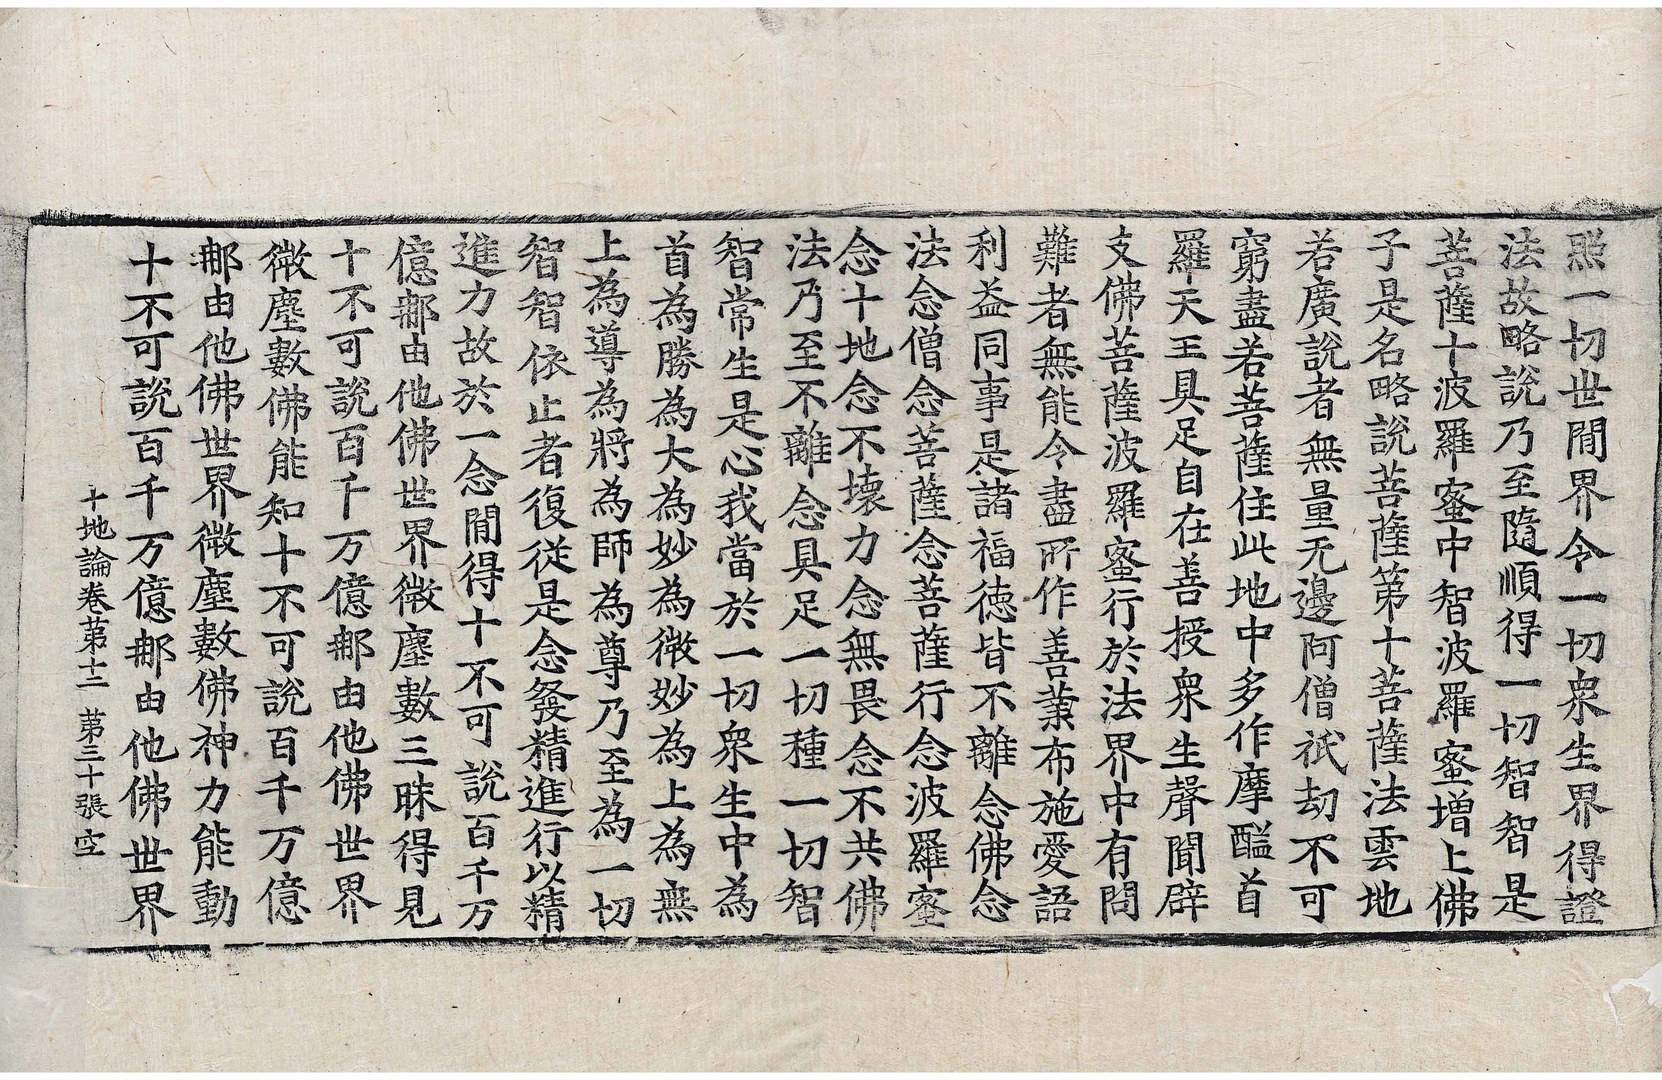 照一切世間界令一切衆生界得證
法故略說乃至隨順得一切智智是
菩薩十波羅蜜中智波羅蜜增上佛
子是名略說菩薩第十菩薩法雲地
若廣說者無量无邊阿僧祇劫不可
窮盡若菩薩住此地中多作摩醯首
羅天王具足自在善授衆生聲聞辟
支佛菩薩波羅蜜行於法界中有問
難者無能令盡所作善業布施愛語
利益同事是諸福徳皆不離念佛念
法念僧念菩薩念菩薩行念波羅蜜
念十地念不壞力念無畏念不共佛
法乃至不離念具足一切種一切智
智常生是心我當於一切衆生中為
首為勝為大為妙為微妙為上為無
上為導為將為師為尊乃至為一切
智智依止者復從是念發精進行以精
進力故於一念間得十不可說百千万
億那由他佛世界微塵數三昧得見
十不可說百千万億那由他佛世界
微塵數佛能知十不可說百千万億
那由他佛世界微塵數佛神力能動
十不可說百千万億那由他佛世界
十地論卷第十二 第三十張 空